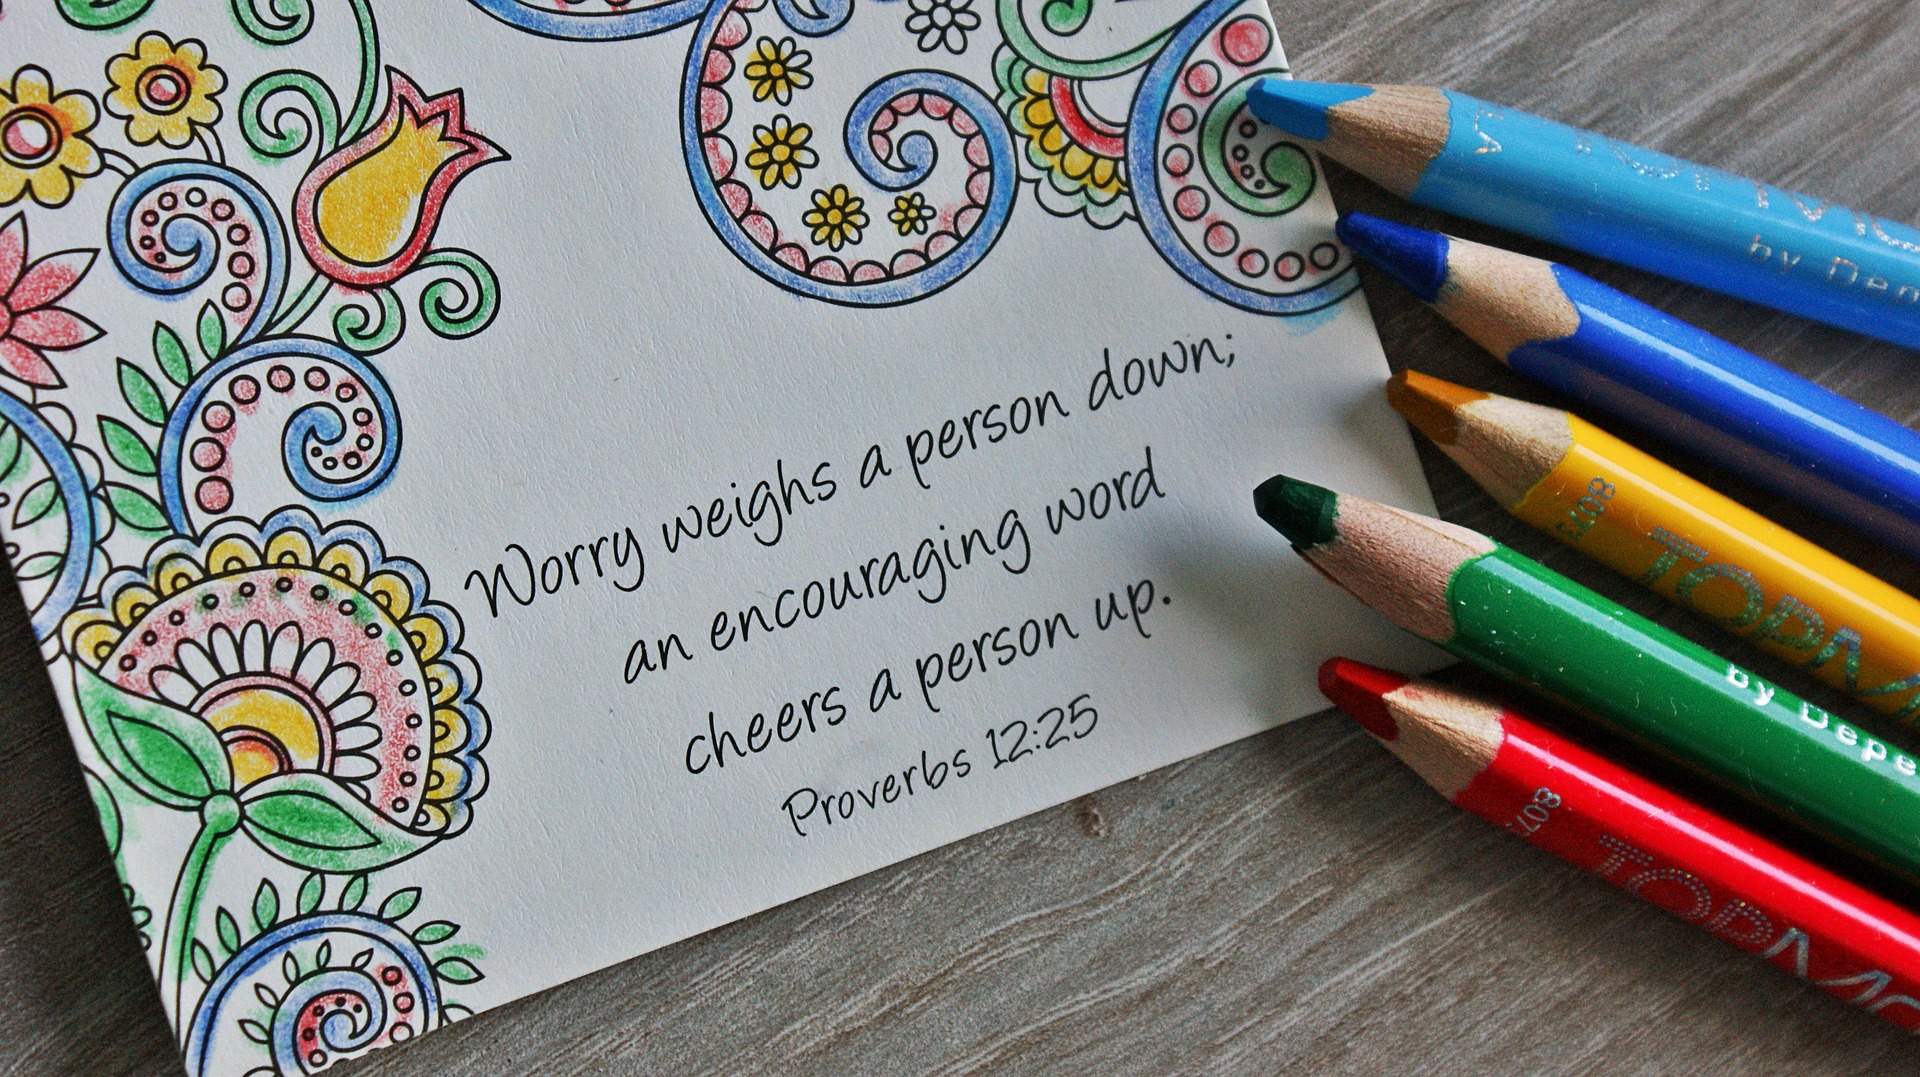 Worry weighs a person down;
an encouraging word
cheers a person up.
Proverbs 12:25
by
TOPM
by Depe
TOPM